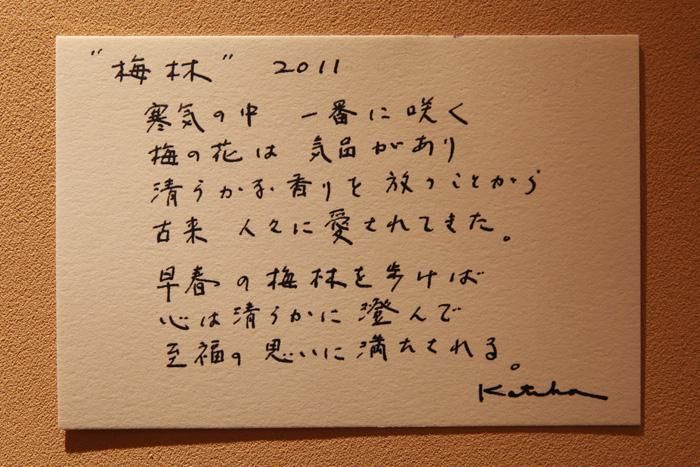 "梅林" 2011
寒気の中 一番に咲く
梅の花は 気品があり
清らかな香りを 放つことから
古来 人々に愛されてきた。
早春の梅林を歩けば
心は清らかに澄んで
至福の思いに満たされる。